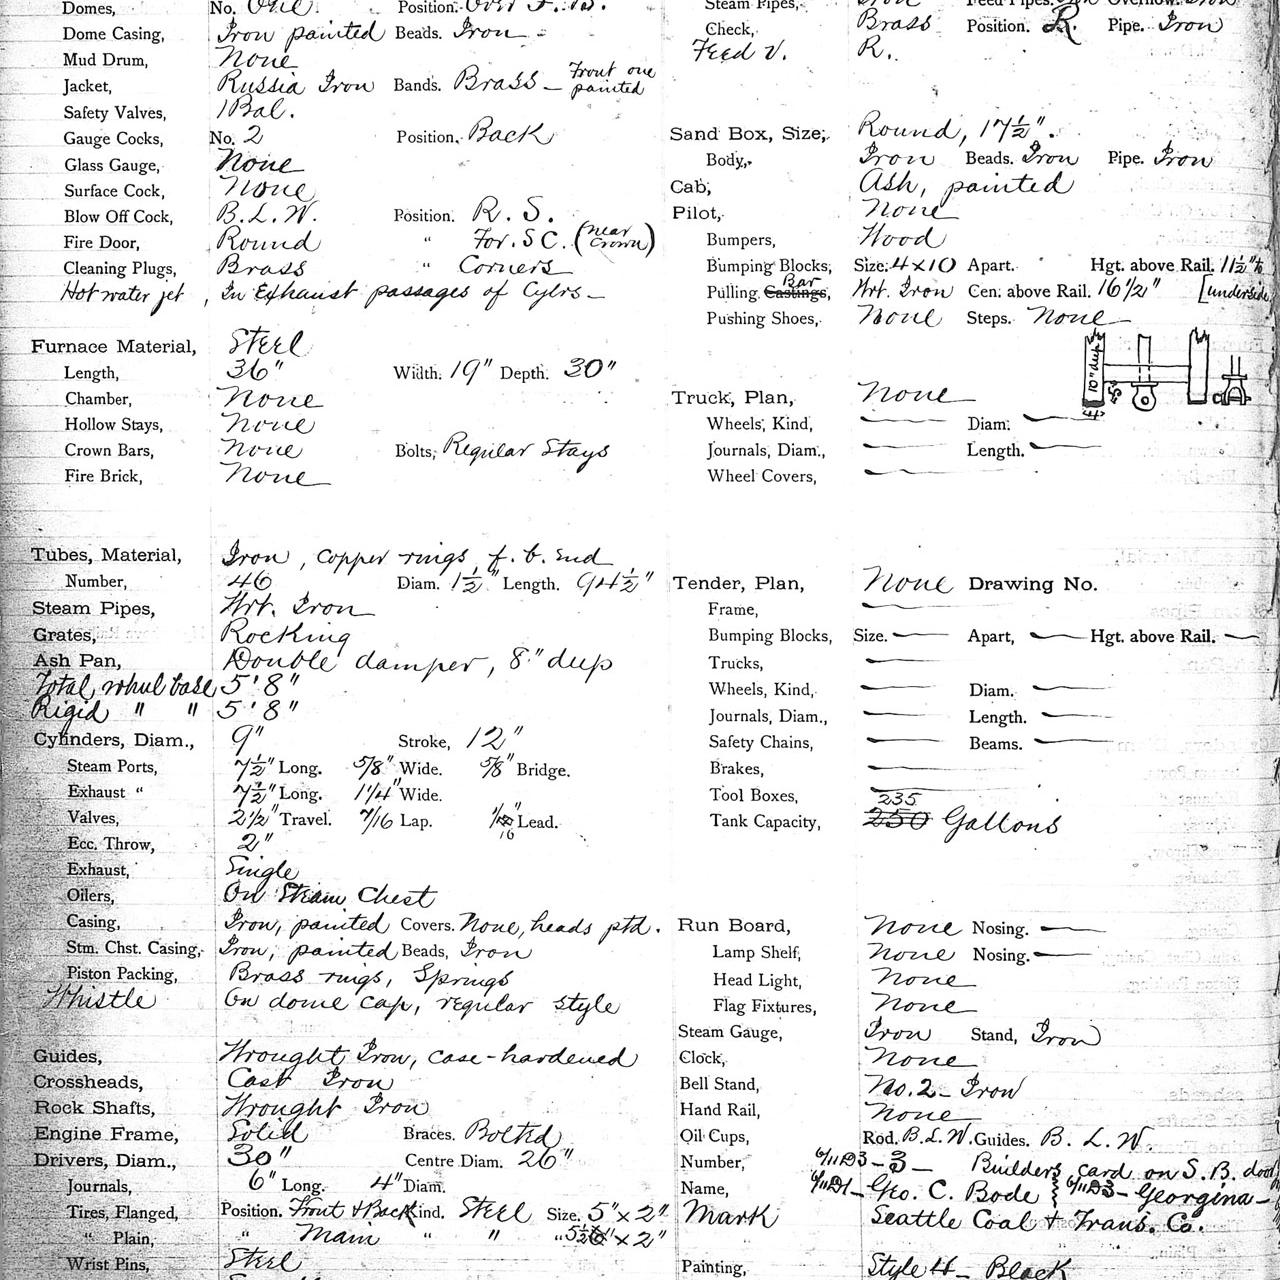 Domes, No. One Position. Over F. B.
Dome Casing, Iron painted Beads. Iron -
Mud Drum, None
Jacket, Russia Iron Bands. Brass - Front one painted
Safety Valves, 1 Bal.
Gauge Cocks, No. 2 Position. Back
Glass Gauge, None
Surface Cock, None
Blow Off Cock, B. L. W. Position. R. S.
Fire Door, Round " For. S C. (near Crown)
Cleaning Plugs, Brass " Corners
Hot water jet, In Exhaust passages of Cylrs -
Furnace Material, Steel
Length, 36" Width. 19" Depth. 30"
Chamber, None
Hollow Stays, None
Crown Bars, None Bolts, Regular Stays
Fire Brick, None
Tubes, Material, Iron, copper rings, f. b. end
Number, 46 Diam. 1½" Length. 94½"
Steam Pipes, Wrt. Iron
Grates, Rocking
Ash Pan, Double damper, 8" deep
Total wheel base 5' 8"
Rigid " " 5' 8"
Cylinders, Diam., 9" Stroke, 12"
Steam Ports, 7½" Long. 5/8" Wide. 5/8" Bridge.
Exhaust " 7½" Long. 1¼" Wide.
Valves, 2½" Travel. 7/16 Lap. 1/16" Lead.
Ecc. Throw, 2"
Exhaust, Single
Oilers, On Steam Chest
Casing, Iron, painted Covers. None, heads ptd.
Stm. Chst. Casing, Iron, painted Beads, Iron
Piston Packing, Brass rings, Springs
Whistle On dome cap, regular style
Guides, Wrought Iron, case-hardened
Crossheads, Cast Iron
Rock Shafts, Wrought Iron
Engine Frame, Solid Braces. Bolted
Drivers, Diam., 30" Centre Diam. 26"
Journals, 6" Long. 4" Diam.
Tires, Flanged, Position. Front & Back Kind. Steel Size. 5" x 2"
" Plain, " Main " " " 5½" x 2"
Wrist Pins, Steel
Steam Pipes, Iron Feed Pipes. Iron Overflow. Iron
Check, Brass Position. R. Pipe. Iron
Feed V. R.
Sand Box, Size, Round, 17½".
Body, Iron Beads. Iron Pipe. Iron
Cab, Ash, painted
Pilot, None
Bumpers, Wood
Bumping Blocks, Size. 4 x 10 Apart. Hgt. above Rail. 11½" to
Pulling Castings, Bar Wrt. Iron Cen. above Rail. 16½" [underside
Pushing Shoes, None Steps. None
10" deep
5"
4"
Truck, Plan, None
Wheels, Kind, — Diam. —
Journals, Diam., — Length. —
Wheel Covers, —
Tender, Plan, None Drawing No.
Frame, —
Bumping Blocks, Size. — Apart, — Hgt. above Rail. —
Trucks, —
Wheels, Kind, — Diam. —
Journals, Diam., — Length. —
Safety Chains, — Beams. —
Brakes, —
Tool Boxes, —
235
Tank Capacity, 250 Gallons
Run Board, None Nosing. —
Lamp Shelf, None Nosing. —
Head Light, None
Flag Fixtures, None
Steam Gauge, Iron Stand, Iron
Clock, None
Bell Stand, No. 2 - Iron
Hand Rail, None
Oil Cups, Rod. B. L. W. Guides. B. L. W.
Number, - 3 - Builders card on S. B. door
Name, Geo. C. Bode - Georgina -
Mark Seattle Coal & Trans. Co.
Painting, Style H - Black